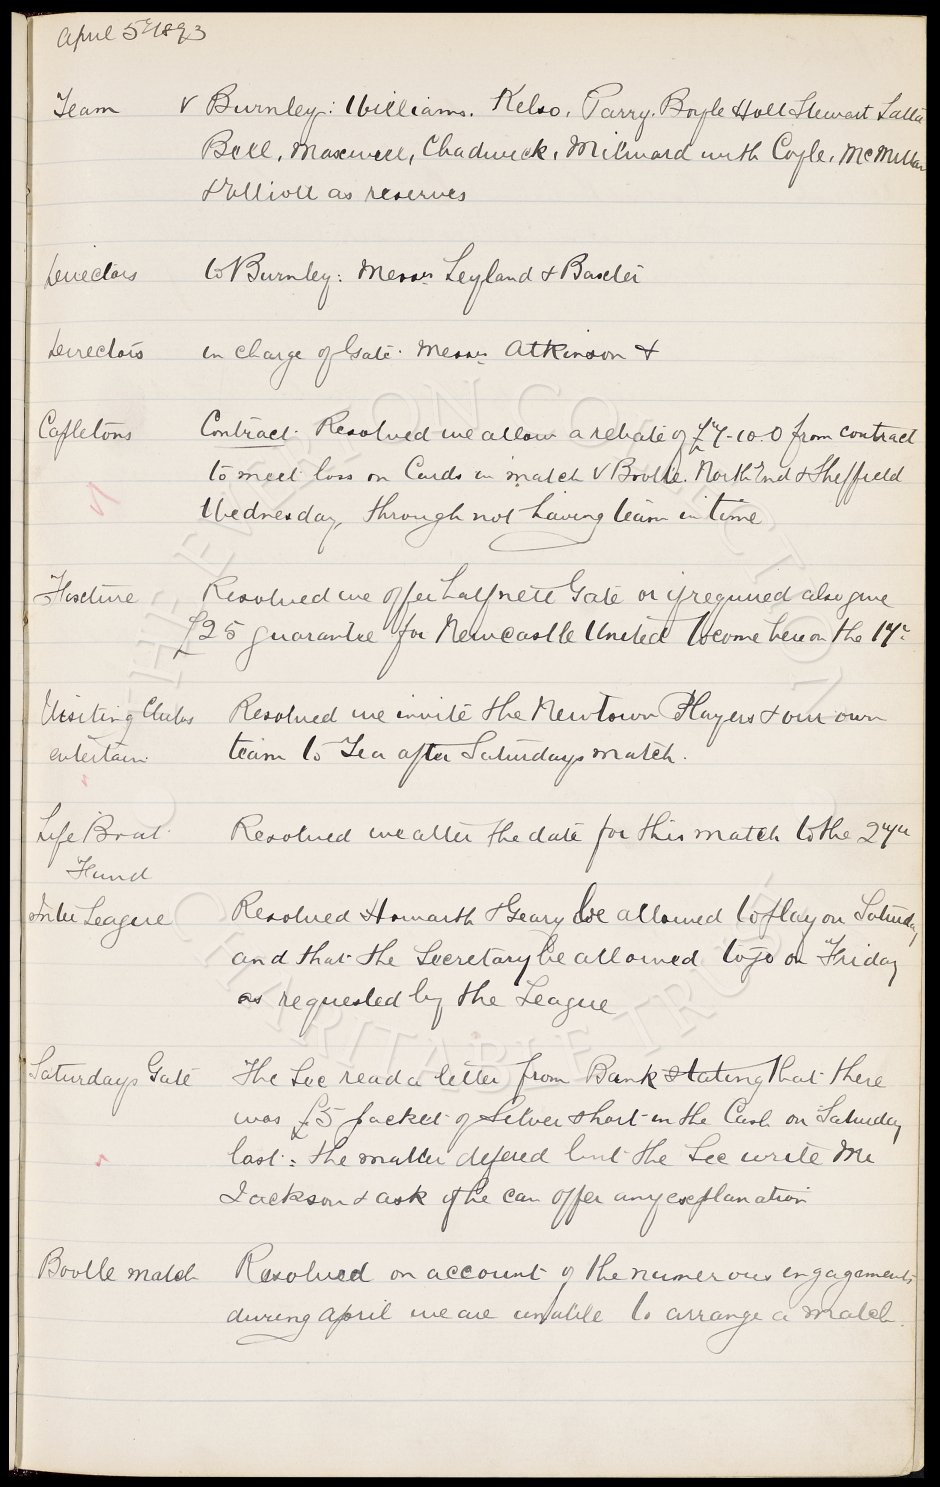 April 5th 1893
Team v Burnley: Williams. Kelso, Parry. Boyle Holt Stewart Latta
Bell, Maxwell, Chadwick, Milward with Coyle, McMillan
& Elliott as reserves
Directors to Burnley: Messrs Leyland & Baxter
Directors in charge of Gate. Messrs Atkinson &
Capletons Contract. Resolved we allow a rebate of £7-10-0 from contract
to meet loss on Cards in match v Bootle. North End & Sheffield
Wednesday, through not having team in time
Fixture Resolved we offer half nett Gate or if required also give
£25 guarantee for Newcastle United to come here on the 17th
Visiting Clubs Resolved we invite the Newtown Players & our own
entertain team to Tea after Saturdays match.
Life Boat Resolved we alter the date for this match to the 27th
Fund
Inter League Resolved Howarth & Geary be allowed to play on Saturday
and that the Secretary be allowed to go on Friday
as requested by the League
Saturdays Gate The Sec read a letter from Bank stating that there
was £5 packet of Silver short in the Cash on Saturday
last: the matter defered but the Sec write Mr
Jackson & ask if he can offer any explanation
Bootle match Resolved on account of the numerous engagements
during April we are unable to arrange a match.
THE EVERTON COLLECTION
CHARITABLE TRUST